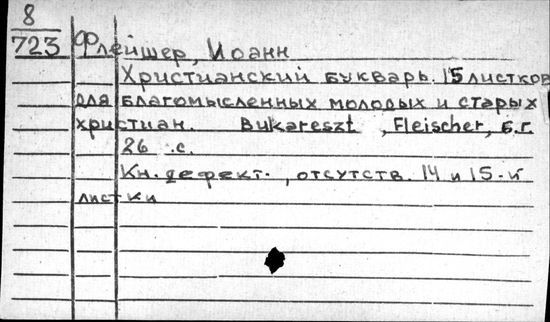 8
723
Флейшер, Иоанн
Христианский букварь. 15 листков
для благомысленных молодых и старых
христиан. Bukareszt, Fleischer, б.г.
26 с.
Кн. дефект., отсутств. 14 и 15-й
листки